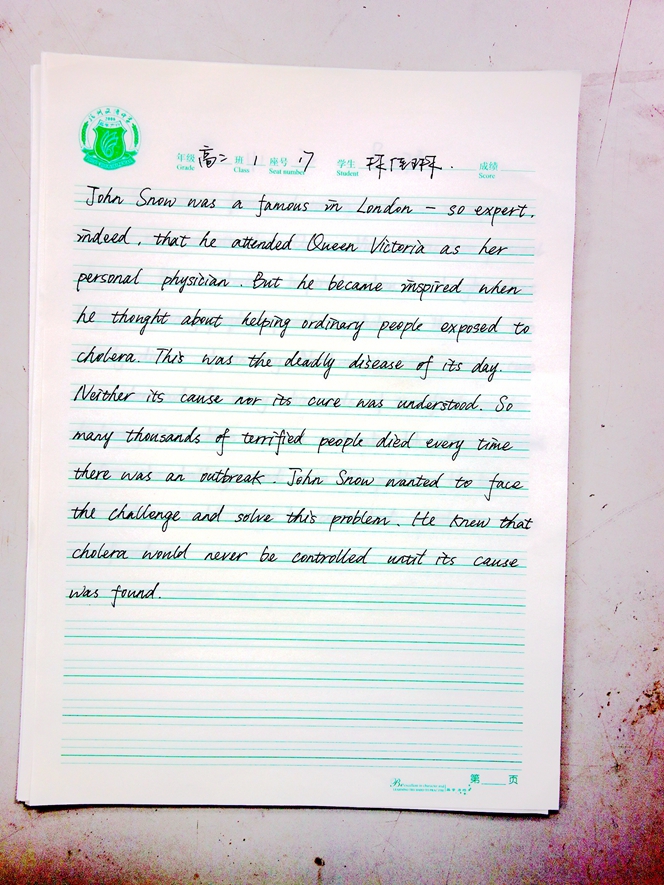 年级 高二 班 1 座号 17 学生 成绩
Grade Class Seat number Student Score
John Snow was a famous in London - so expert,
indeed, that he attended Queen Victoria as her
personal physician. But he became inspired when
he thought about helping ordinary people exposed to
cholera. This was the deadly disease of its day.
Neither its cause nor its cure was understood. So
many thousands of terrified people died every time
there was an outbreak. John Snow wanted to face
the challenge and solve this problem. He knew that
cholera would never be controlled until its cause
was found.
第 页